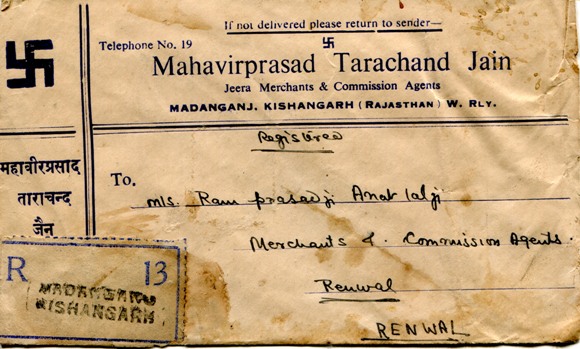 If not delivered please return to sender—
Telephone No. 19
卐
Mahavirprasad Tarachand Jain
Jeera Merchants & Commission Agents
MADANGANJ. KISHANGARH (RAJASTHAN) W. RLY.
卐
महावीरप्रसाद
ताराचन्द
जैन
Registered
To.
M/s. Ram prasadji Anat lal ji
Merchants & Commission Agents.
Renwal
RENWAL
R 13
MADANGANJ
KISHANGARH